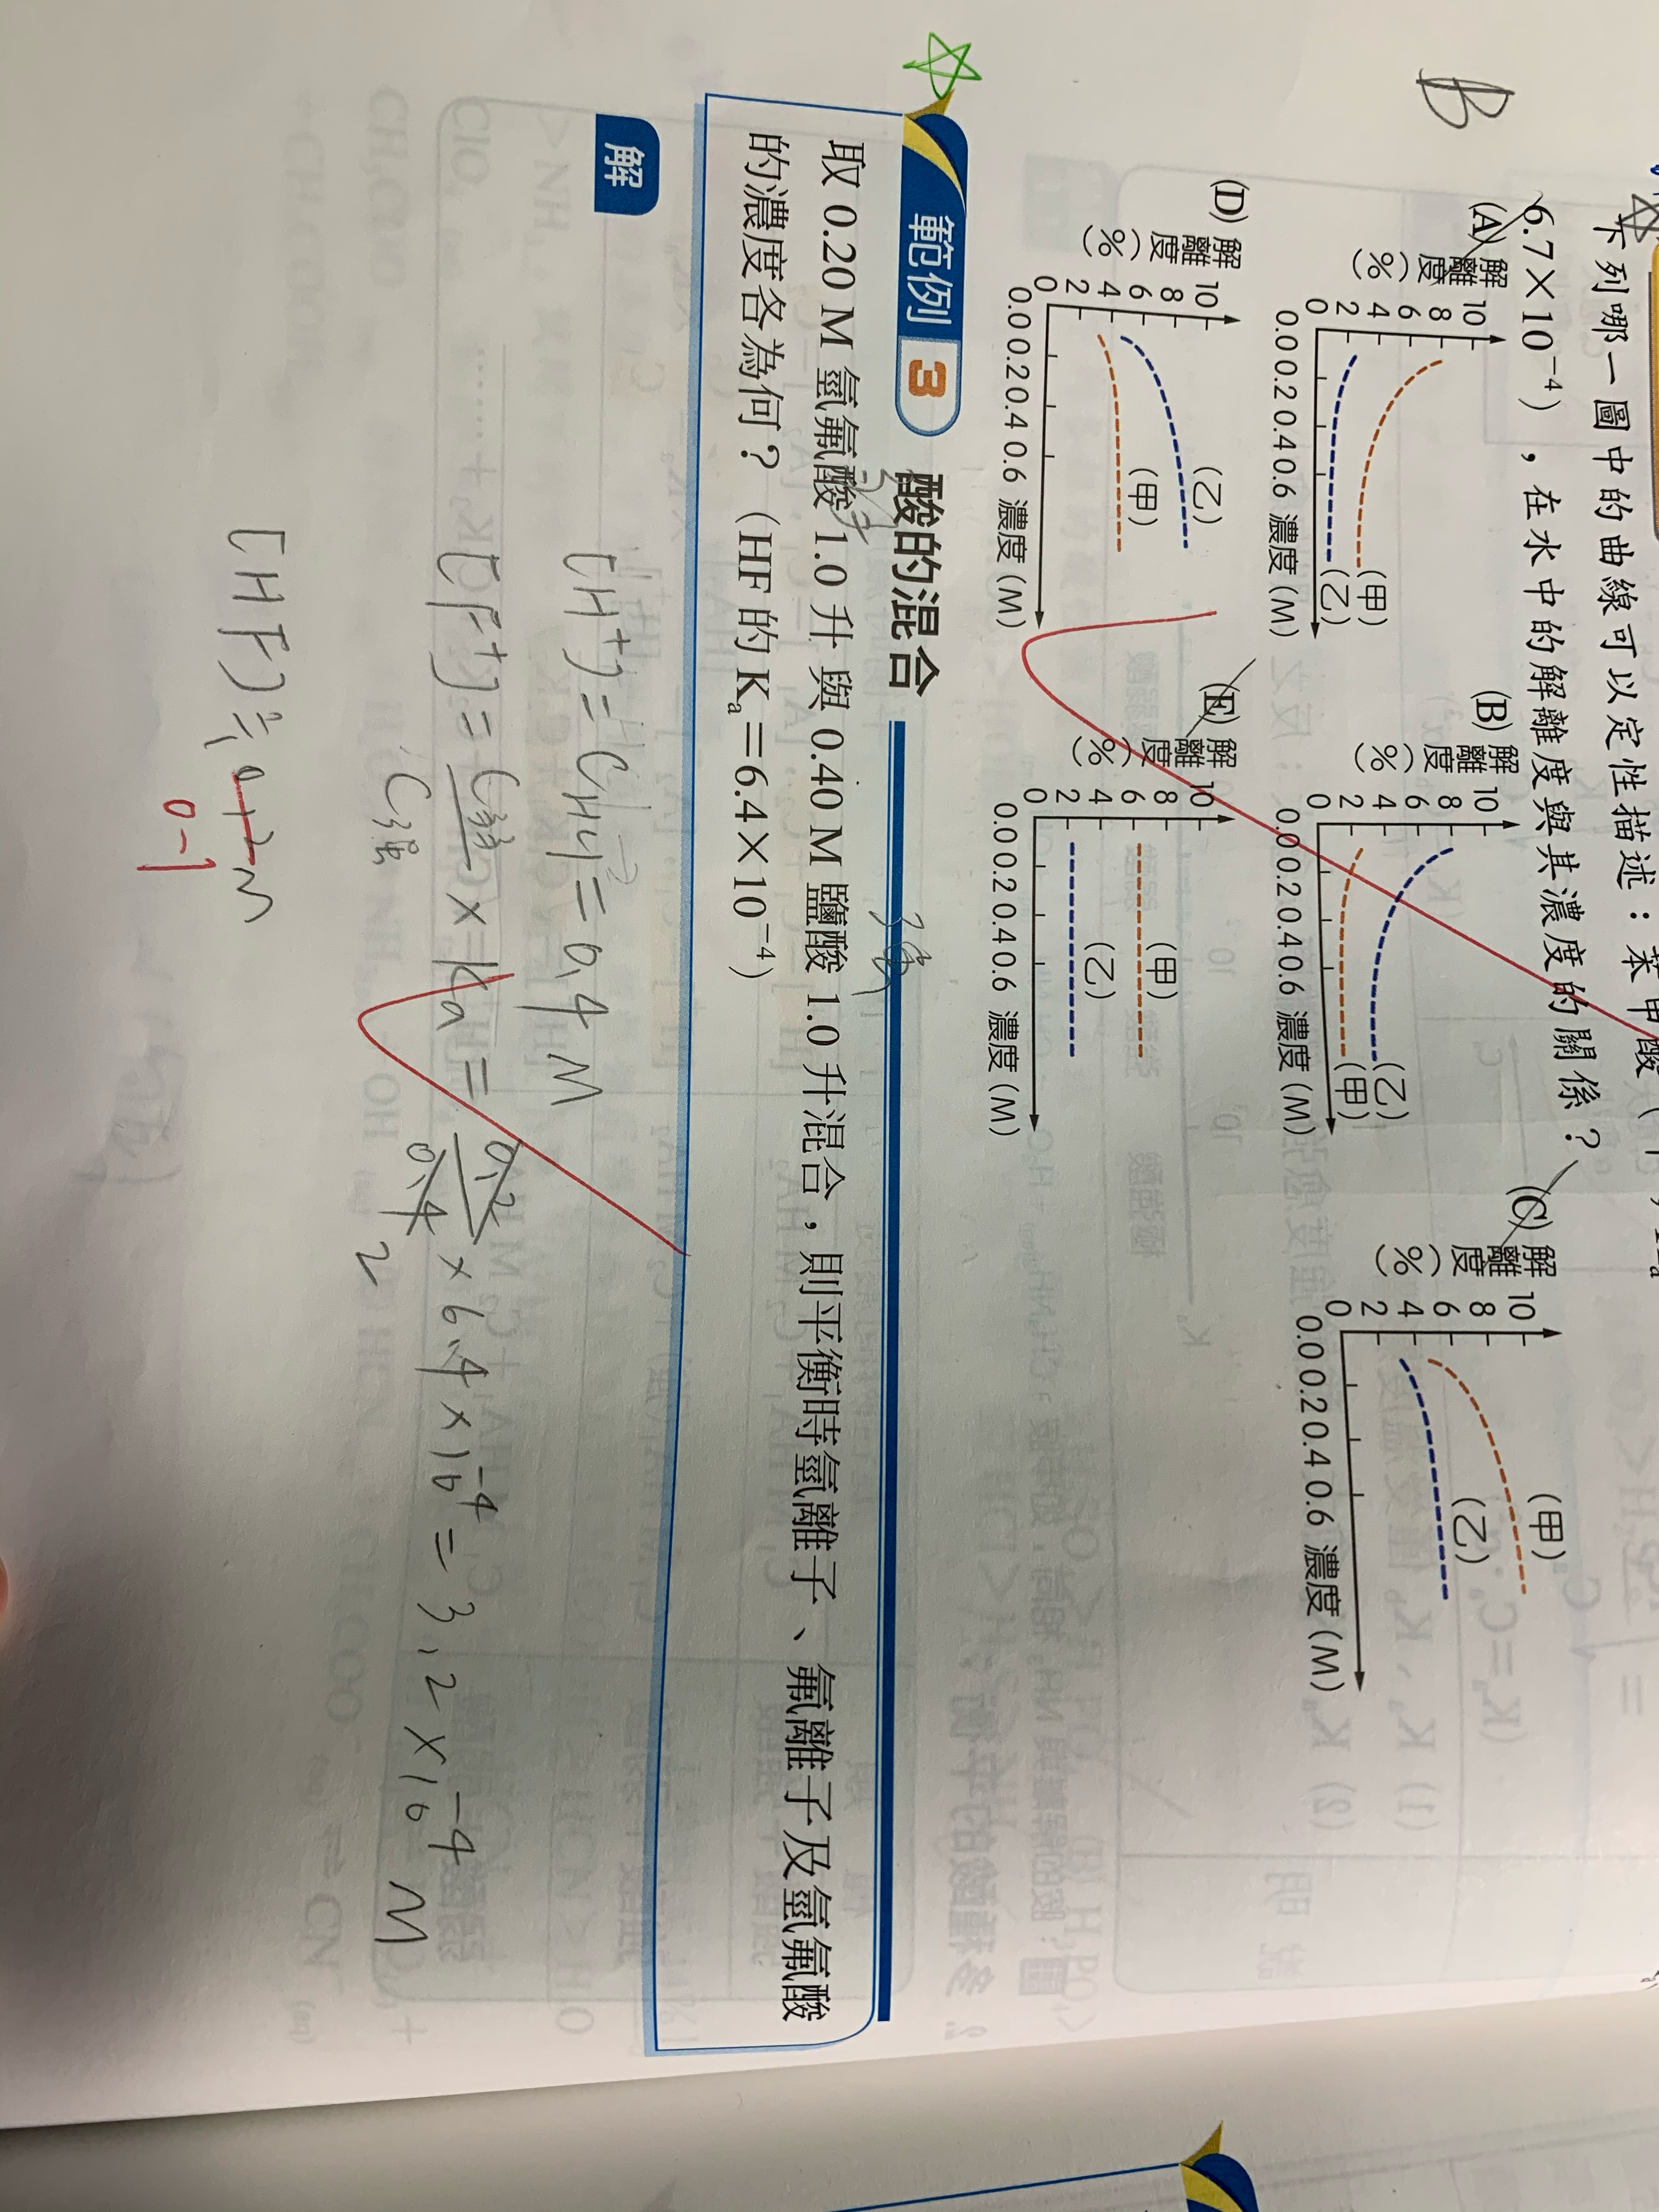 下列哪一圖中的曲線可以定性描述：苯甲酸
6.7×10⁻⁴），在水中的解離度與其濃度的關係？
B
(A) 解離度(%)
10
8
6
4
2
0
0.0 0.2 0.4 0.6 濃度(M)
(甲)
(乙)
(B) 解離度(%)
10
8
6
4
2
0
0.0 0.2 0.4 0.6 濃度(M)
(乙)
(甲)
(C) 解離度(%)
10
8
6
4
2
0
0.0 0.2 0.4 0.6 濃度(M)
(甲)
(乙)
(D) 解離度(%)
10
8
6
4
2
0
0.0 0.2 0.4 0.6 濃度(M)
(乙)
(甲)
(E) 解離度(%)
10
8
6
4
2
0
0.0 0.2 0.4 0.6 濃度(M)
(甲)
(乙)
範例 3 酸的混合
弱 強
取 0.20 M 氫氟酸 1.0 升與 0.40 M 鹽酸 1.0 升混合，則平衡時氫離子、氟離子及氫氟酸
的濃度各為何？（HF 的 Kₐ＝6.4×10⁻⁴）
解
[H⁺] = C = 0.4 M
[F⁺] = C弱/C強 × Ka = 0.2/0.4 × 6.4 × 10⁻⁴ = 3.2 × 10⁻⁴ M
2
[HF] ≒ 0.2 M
0.1